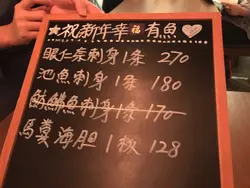 ★祝新年幸福有魚♡
眼仁奈刺身1条 270
池魚刺身1条 180
魚刺身1条 170
馬糞海胆1板 128